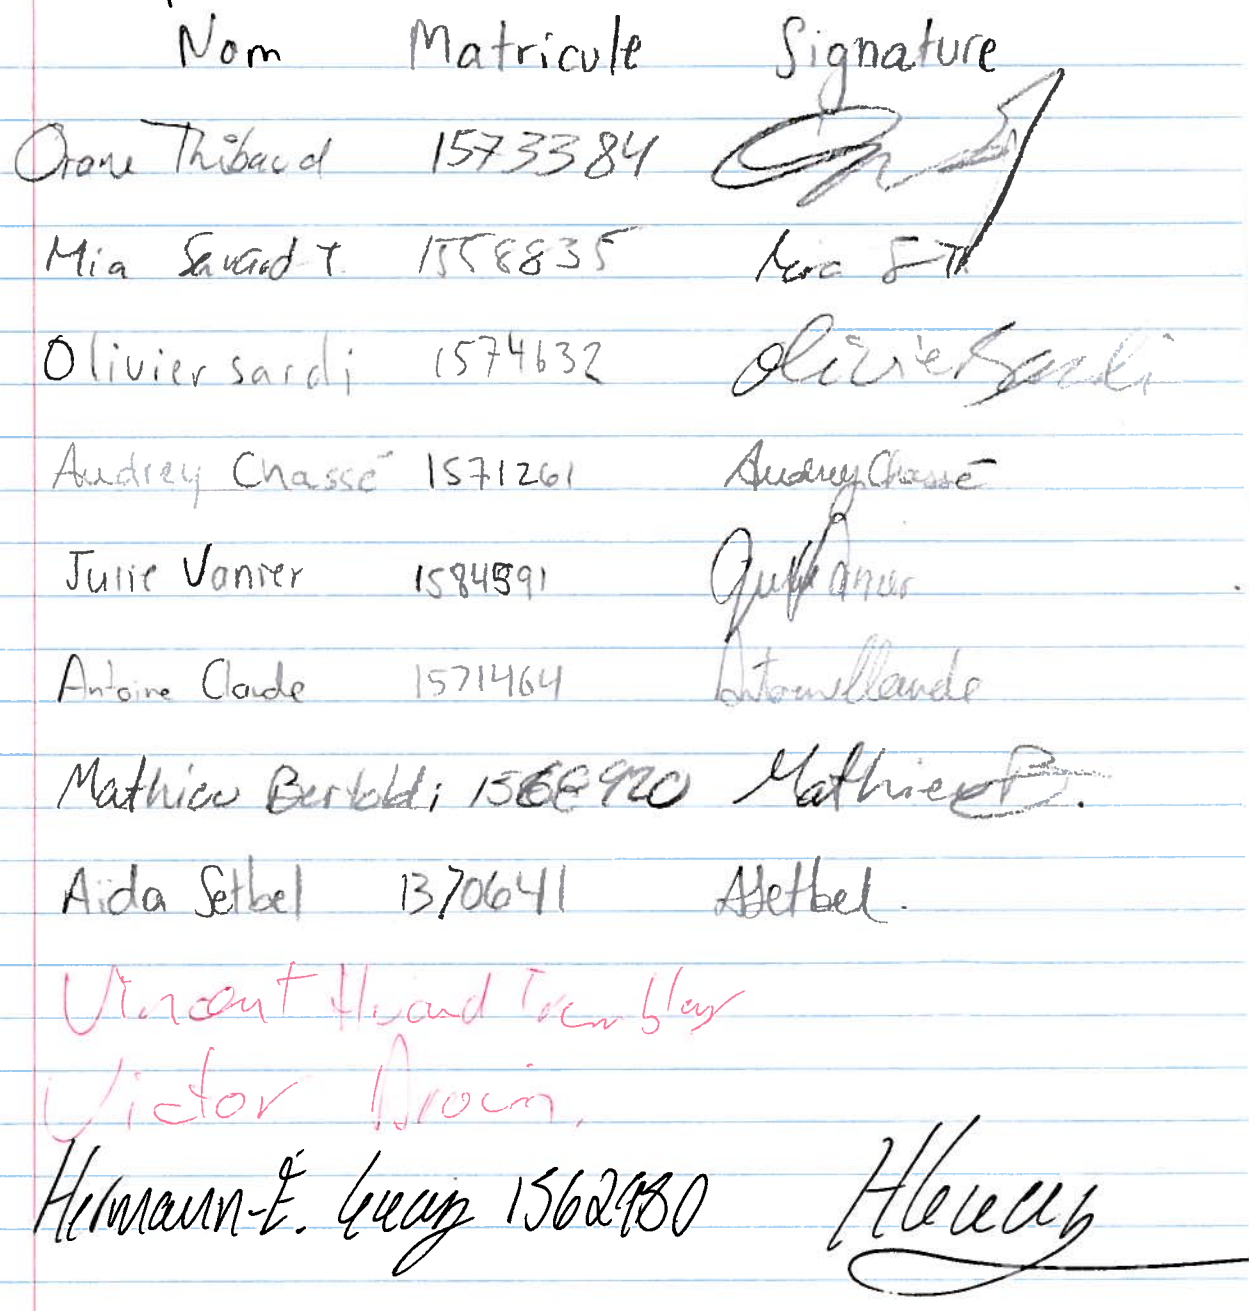 Nom Matricule Signature
Orane Thibaud 1573384
Mia Savard T. 1558835 Mia S-T
Olivier sardi 1574632 Olivier Sardi
Audrey Chassé 1571261 Audrey Chassé
Julie Vanier 1584591 Julie Vanier
Antoine Claude 1571464 Antoine Claude
Mathieu Bertoldi 1568920 Mathieu B.
Aïda Setbel 1370641 ASetbel.
Vincent Huard Tremblay
Victor Drouin.
Hermann-É. 1562980